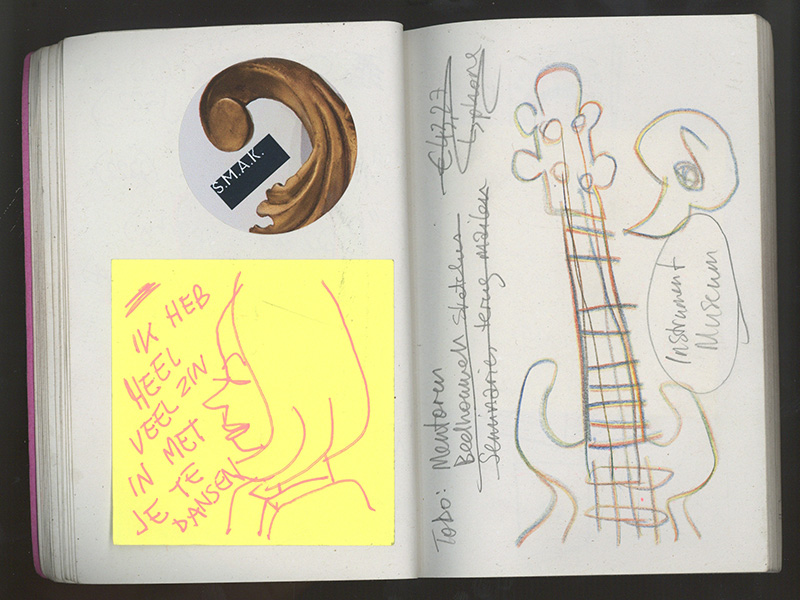 S.M.A.K.
IK HEB
HEEL
VEEL ZIN
IN MET
JE TE
DANSEN
ToDo: Mentoren
Beelhouwen sketches
Seminaries terug mailen
€43,27
Instrument
Museum